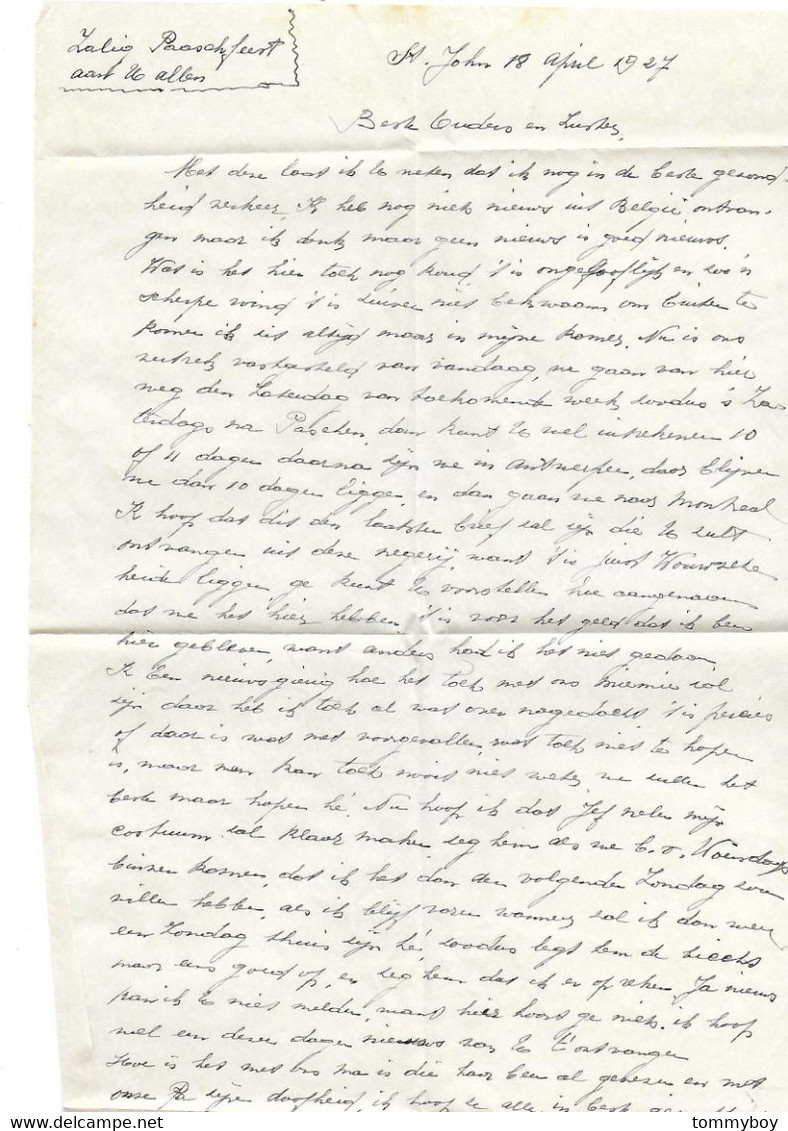 Zalig Paaschfeest
aan U allen
St. John 18 April 1927
Beste Ouders en Zuster,
Met deze laat ik U weten dat ik nog in de beste gezond-
heid verkeer. Ik heb nog niets nieuws uit België ontvan-
gen maar ik denk maar geen nieuws is goed nieuws.
Wat is het hier toch nog koud, 't is ongelooflijk en zoo'n
scherpe wind 't is zuiver niet bekwaam om buiten te
komen ik zit altijd maar in mijne kamer. Nu is ons
vertrek vastgesteld van vandaag, we gaan van hier
weg den Zaterdag van toekomende week zoodus 's Za-
terdags na Paschen, dan kunt U wel inrekenen 10
of 11 dagen daarna zijn we in Antwerpen, daar blijven
we dan 10 dagen liggen en dan gaan we naar Montreal
Ik hoop dat dit den laatsten brief zal zijn die U zult
ontvangen uit deze negerij, want 't is juist Wouwsche
heide liggen ge kunt U voorstellen hoe aangenaam
dat we het hier hebben 't is voor het geld dat ik ben
hier gebleven want anders had ik het niet gedaan
Ik ben nieuwsgierig hoe het toch met ons Miemie zal
zijn daar heb ik toch al wat over nagedacht 't is precies
of daar is wat met voorgevallen, wat toch niet te hopen
is, maar men kan toch nooit niet weten we zullen het
beste maar hopen hé. Nu hoop ik dat Jef neten mijn
costuum zal klaar maken zeg hem als we b.v. Woensdags
binnen komen, dat ik het dan den volgenden Zondag zou
willen hebben, als ik blijf varen wanneer zal ik dan weer
een Zondag thuis zijn hé, zoodus legt hem de
maar eens goed op, en zeg hem dat ik er op reken. Ja nieuws
kan ik U niet melden, want hier hoort ge niets. ik hoop
wel een dezer dagen nieuws van U t'ontvangen
Hoe is het met ons ma is die haar been al genezen en met
onze Pa zijne doofheid, ik hoop U alle in beste
www.delcampe.net
tommyboy